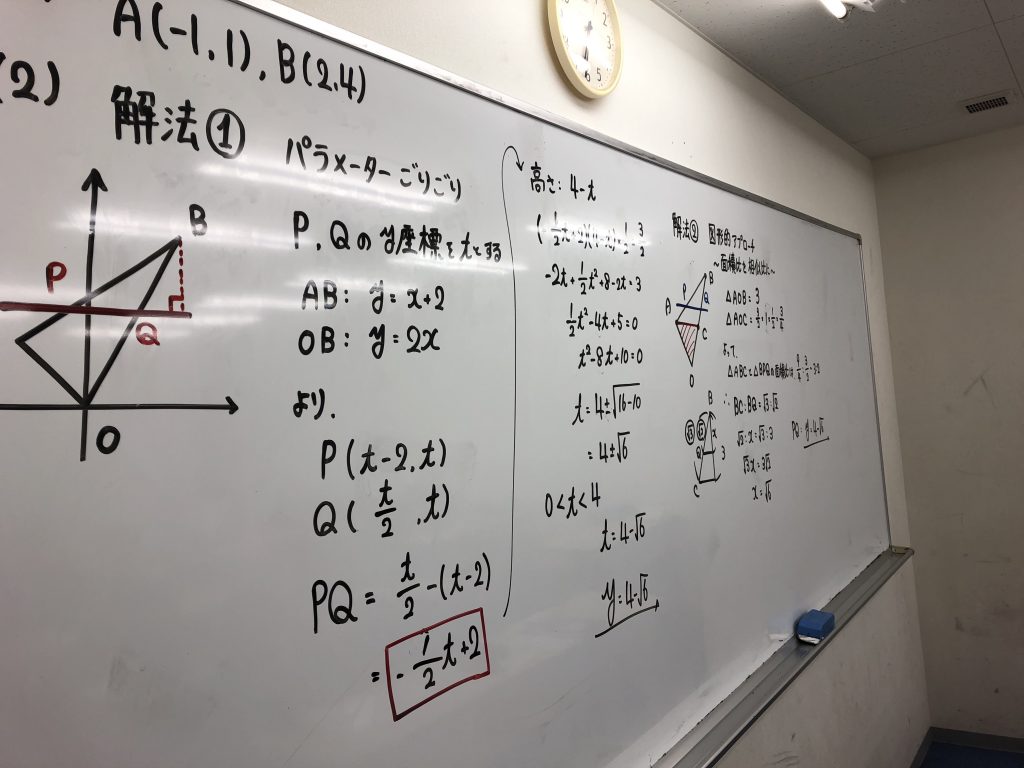 A(-1,1), B(2,4)
(2)
解法① パラメーターごりごり
B
P
Q
O
P,Qのy座標をtとする
AB: y=x+2
OB: y=2x
より,
P(t-2,t)
Q(t/2,t)
PQ=t/2-(t-2)
=-1/2t+2
高さ: 4-t
(-1/2t+2)(4-t)×1/2=3/2
-2t+1/2t²+8-2t=3
1/2t²-4t+5=0
t²-8t+10=0
t=4±√16-10
=4±√6
0<t<4
t=4-√6
y=4-√6
解法② 図形的アプローチ
~面積比と相似比~
B
P
Q
A
C
O
△AOB=3
△AOC=
よって,
△ABC:△BPQの面積比は
∴ BC:BQ=√3:√2
B
x
3
Q
C
√3:x=√3:3
√3x=3√2
x=√6
PQ: y=4-√6
12
2
3
5
6